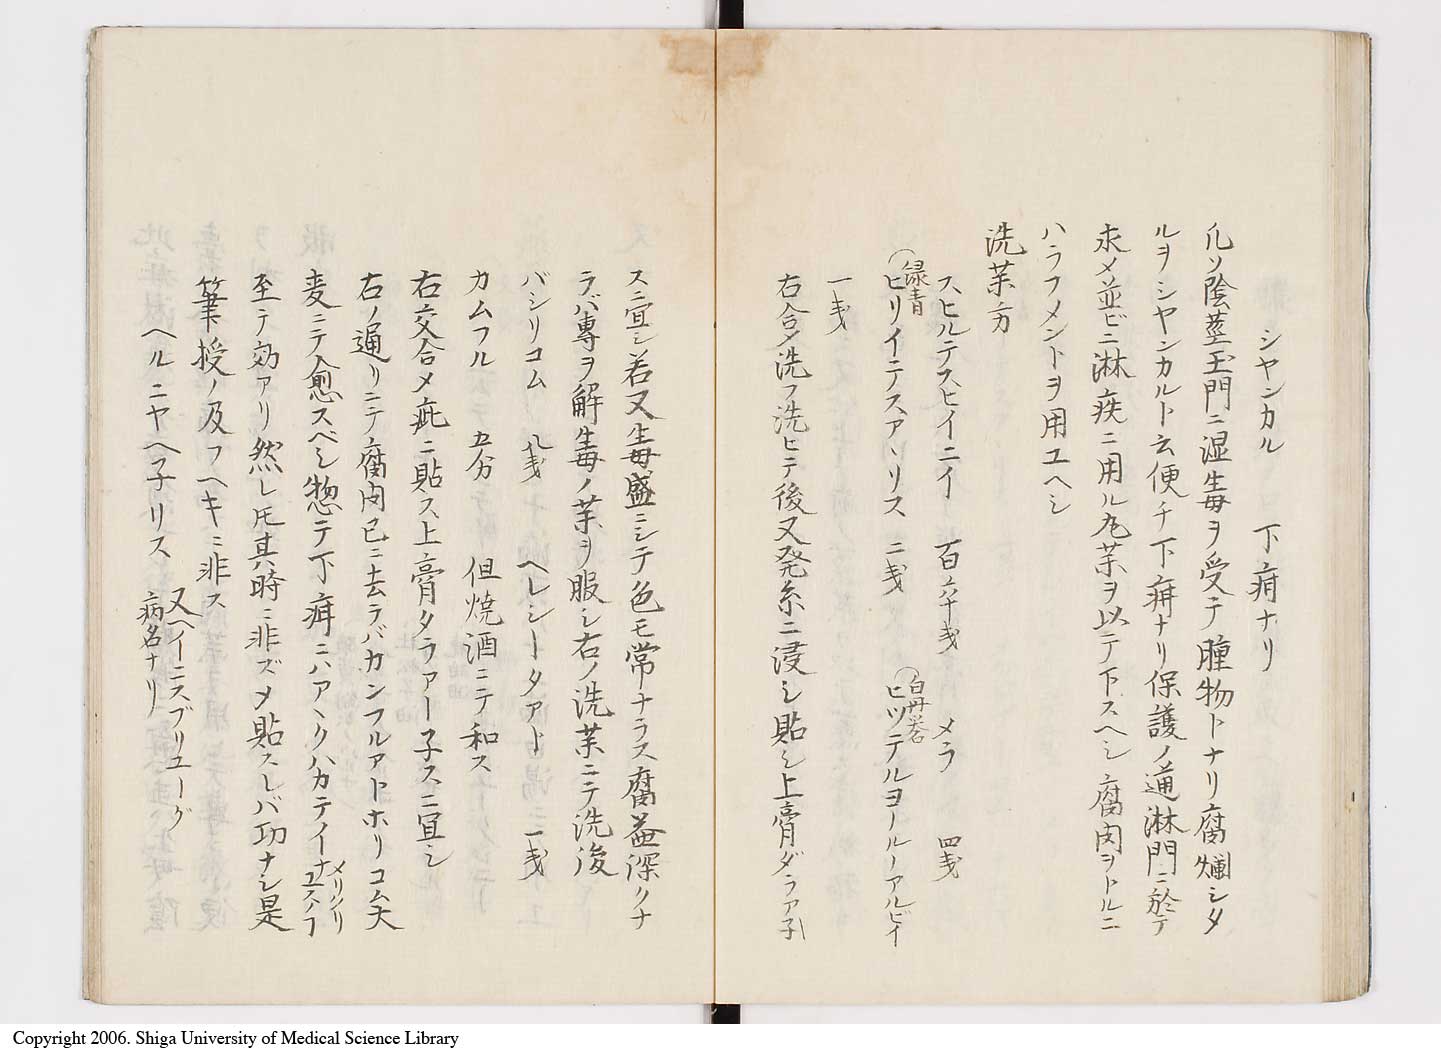 シヤンカル 下疳ナリ
凡ソ陰莖玉門ニ湿毒ヲ受テ腫物トナリ腐爛シタ
ルヲシヤンカルト云便チ下疳ナリ保護ノ道淋門ニ於テ
求メ並ビニ淋疾ニ用ル丸薬ヲ以テ下スヘシ腐肉ヲトルニ
ハラフメントヲ用ユヘシ
洗薬方
スヒルテスヒイニイ 百六十戔 メラ 四戔
緑青 白丹礬
ヒリイニテスアヽリス 二戔 ヒツテルヨールーアルビイ
一戔
右合メ洗フ洗ヒテ後又発糸ニ浸シ貼シ上膏ダラアネ
スニ宜シ若又毒盛ニシテ色モ常ナラス腐益深クナ
ラバ專ヲ解毒ノ薬ヲ服シ右ノ洗薬ニテ洗後
バシリコム 八戔 ヘレシータアト 一戔
カムフル 五分 但焼酒ニテ和ス
右交合メ疵ニ貼ス上膏タラアーネスニ宜シ
右ノ通リニテ腐肉已ニ去ラバカンフルアトホリコム大
麦ニテ愈スベシ惣テ下疳ニハアヽクハカテイナメリクリユスノフ
至テ効アリ然レ𪜈其時ニ非ズメ貼スレバ功ナシ是
筆授ノ及フヘキニ非ス
ヘルニヤヘネリス 又ヘイニスブリユーグ
病名ナリ
Copyright 2006. Shiga University of Medical Science Library